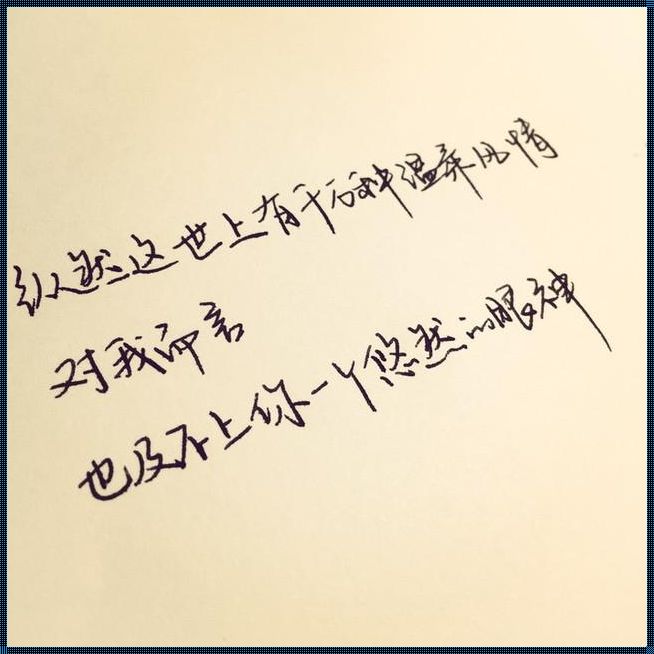 纵然这世上有千百种温柔风情
对我而言
也及不上你一个悠然的眼神